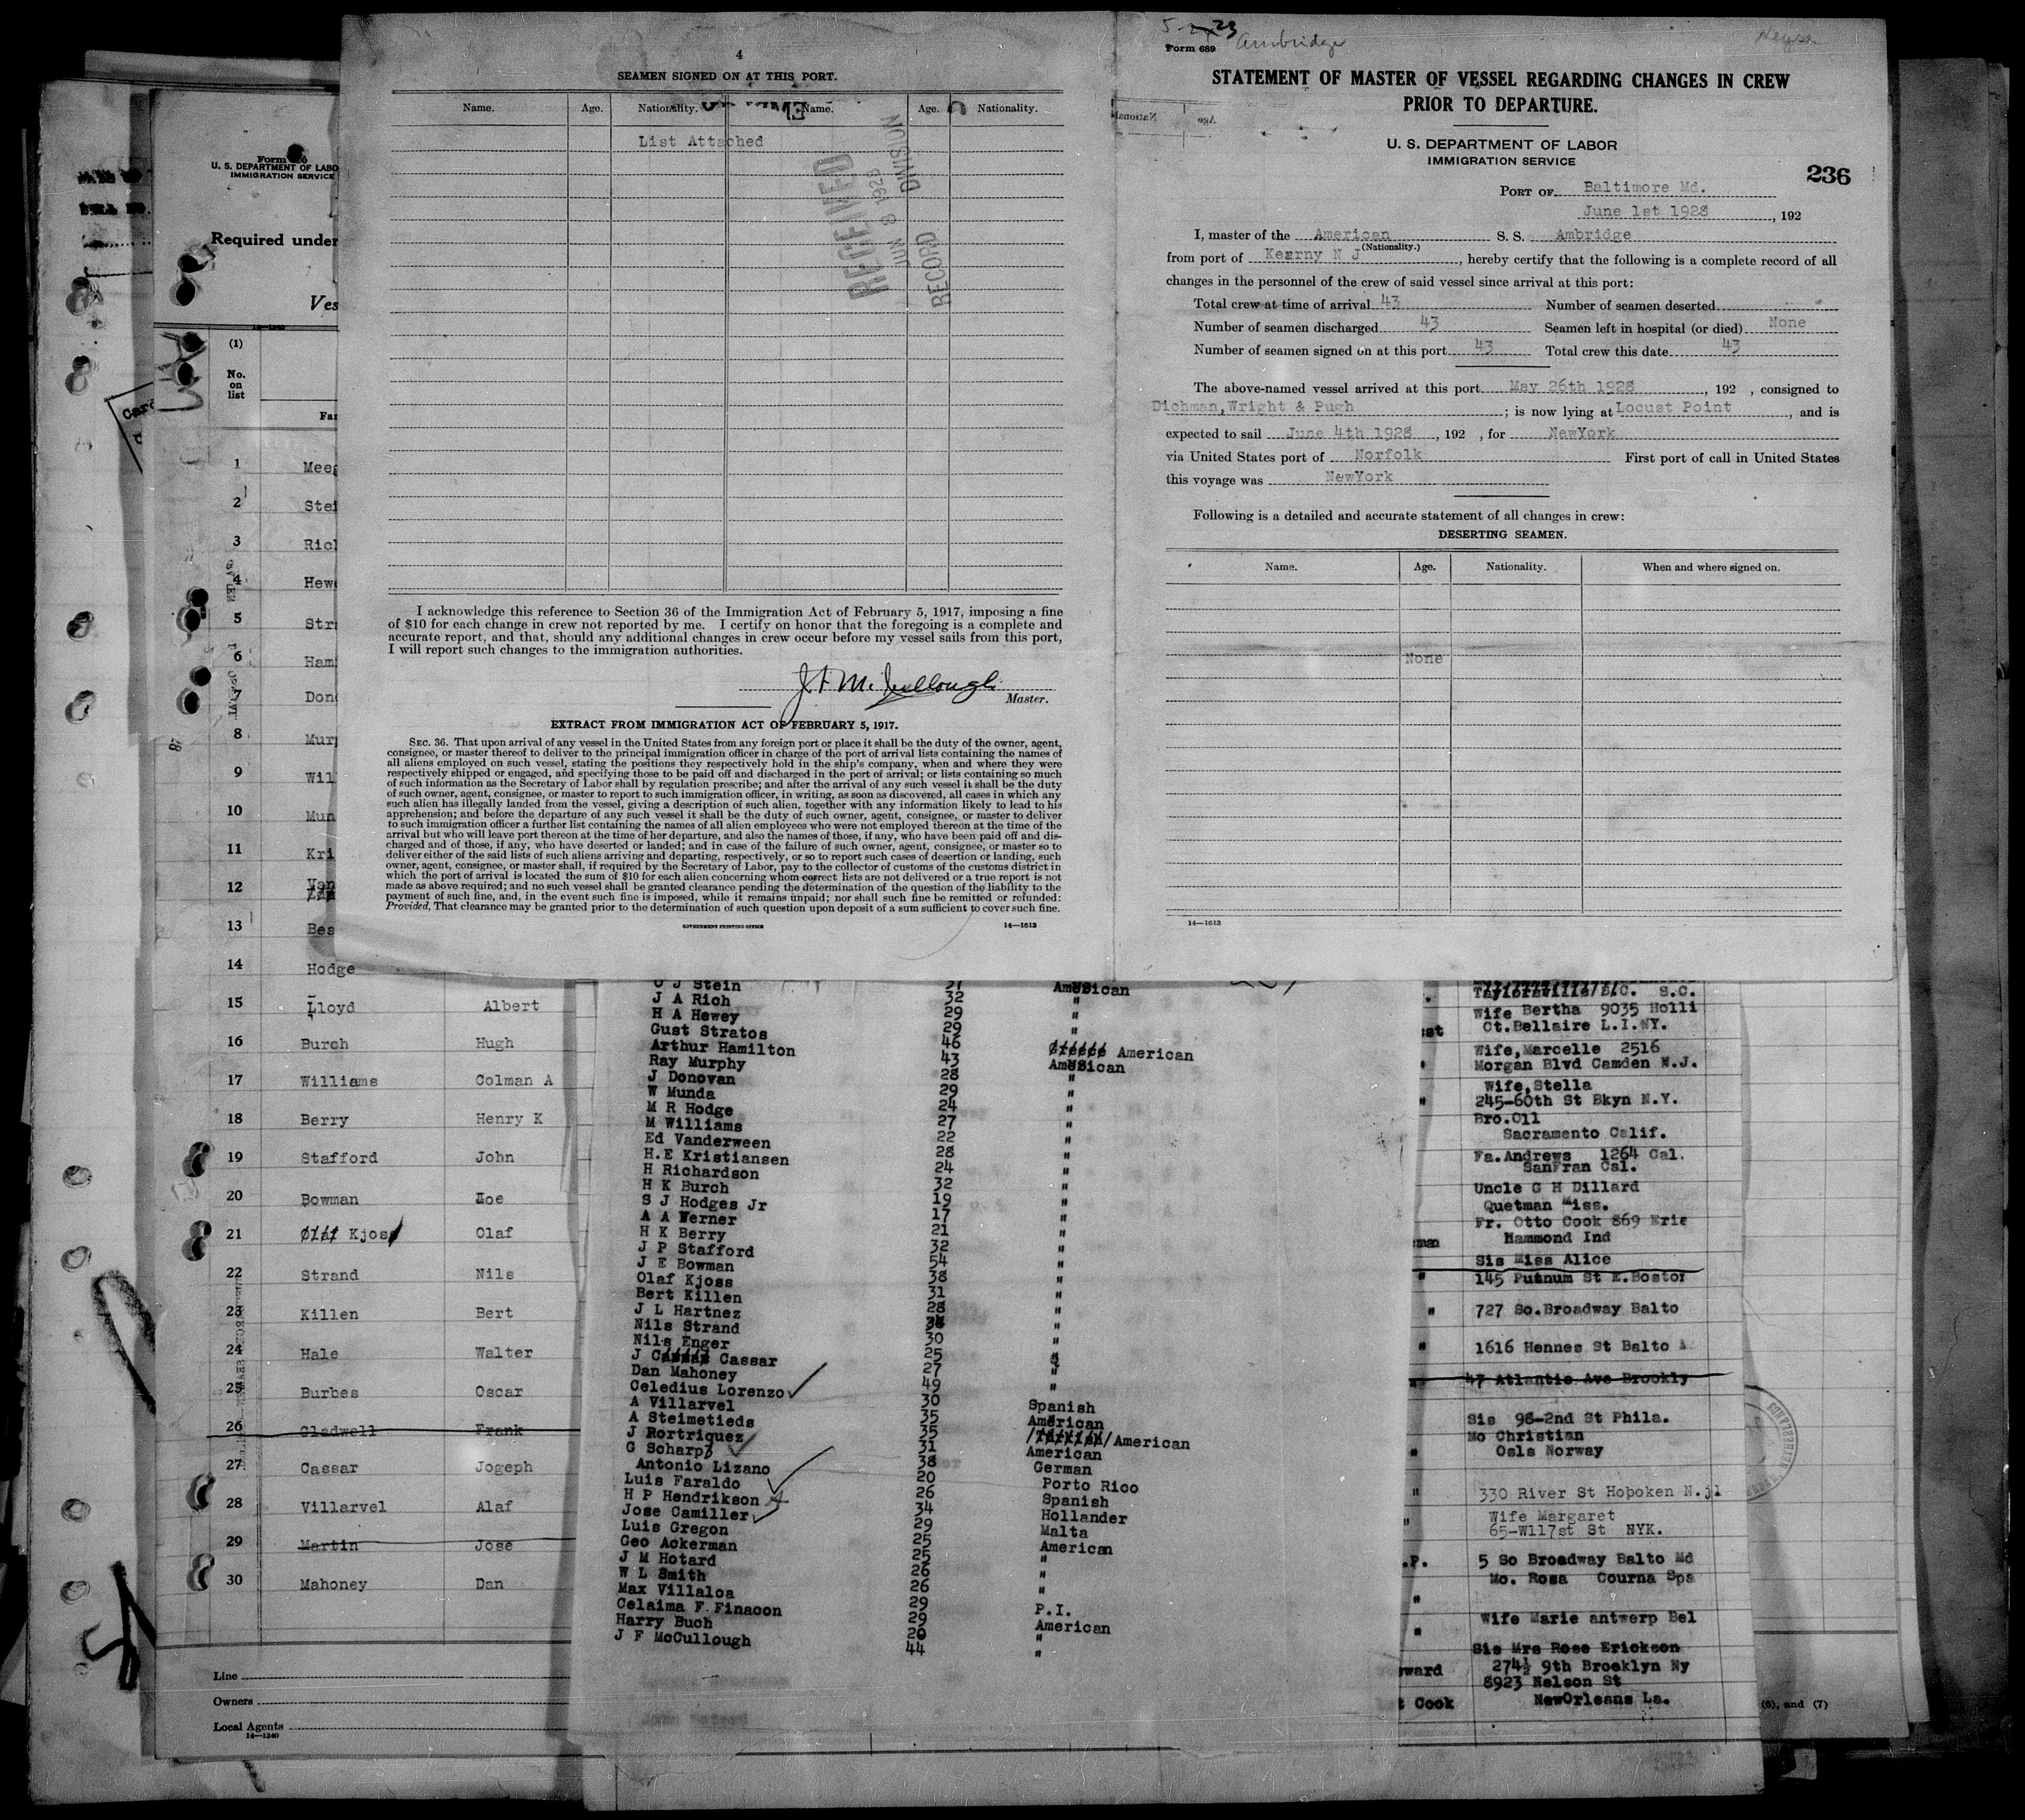 4
SEAMEN SIGNED ON AT THIS PORT.
Name. Age. Nationality. Name. Age. Nationality.
List Attached
RECEIVED
JUN 8 1928
RECORD DIVISION
I acknowledge this reference to Section 36 of the Immigration Act of February 5, 1917, imposing a fine
of $10 for each change in crew not reported by me. I certify on honor that the foregoing is a complete and
accurate report, and that, should any additional changes in crew occur before my vessel sails from this port,
I will report such changes to the immigration authorities.
J F McCullough
Master.
EXTRACT FROM IMMIGRATION ACT OF FEBRUARY 5, 1917.
SEC. 36. That upon arrival of any vessel in the United States from any foreign port or place it shall be the duty of the owner, agent,
consignee, or master thereof to deliver to the principal immigration officer in charge of the port of arrival lists containing the names of
all aliens employed on such vessel, stating the positions they respectively hold in the ship's company, when and where they were
respectively shipped or engaged, and specifying those to be paid off and discharged in the port of arrival; or lists containing so much
of such information as the Secretary of Labor shall by regulation prescribe; and after the arrival of any such vessel it shall be the duty
of such owner, agent, consignee, or master to report to such immigration officer, in writing, as soon as discovered, all cases in which any
such alien has illegally landed from the vessel, giving a description of such alien, together with any information likely to lead to his
apprehension; and before the departure of any such vessel it shall be the duty of such owner, agent, consignee, or master to deliver
to such immigration officer a further list containing the names of all alien employees who were not employed thereon at the time of the
arrival but who will leave port thereon at the time of her departure, and also the names of those, if any, who have been paid off and dis-
charged and of those, if any, who have deserted or landed; and in case of the failure of such owner, agent, consignee, or master so to
deliver either of the said lists of such aliens arriving and departing, respectively, or so to report such cases of desertion or landing, such
owner, agent, consignee, or master shall, if required by the Secretary of Labor, pay to the collector of customs of the customs district in
which the port of arrival is located the sum of $10 for each alien concerning whom correct lists are not delivered or a true report is not
made as above required; and no such vessel shall be granted clearance pending the determination of the question of the liability to the
payment of such fine, and, in the event such fine is imposed, while it remains unpaid; nor shall such fine be remitted or refunded:
Provided, That clearance may be granted prior to the determination of such question upon deposit of a sum sufficient to cover such fine.
GOVERNMENT PRINTING OFFICE 14—1613
Form 689 Ambridge
STATEMENT OF MASTER OF VESSEL REGARDING CHANGES IN CREW
PRIOR TO DEPARTURE.
U. S. DEPARTMENT OF LABOR
IMMIGRATION SERVICE
236
PORT OF Baltimore Md.
June 1st 1928, 192
I, master of the American S. S. Ambridge
(Nationality.)
from port of Kearny N J, hereby certify that the following is a complete record of all
changes in the personnel of the crew of said vessel since arrival at this port:
Total crew at time of arrival 43 Number of seamen deserted
Number of seamen discharged 43 Seamen left in hospital (or died) None
Number of seamen signed on at this port 43 Total crew this date 43
The above-named vessel arrived at this port May 26th 1928, 192 , consigned to
Dichman,Wright & Pugh; is now lying at Locust Point, and is
expected to sail June 4th 1928, 192 , for NewYork
via United States port of Norfolk First port of call in United States
this voyage was NewYork
Following is a detailed and accurate statement of all changes in crew:
DESERTING SEAMEN.
Name. Age. Nationality. When and where signed on.
None
14—1613
U. S. DEPARTMENT OF LABO
IMMIGRATION SERVICE
Required under
Ves
(1)
No.
on
list
Fa
1 Mee
2 Stei
3 Ric
4 Hew
5 Str
6 Ham
7 Don
8 Mur
9 Wil
10 Mun
11 Kri
12 Van
13 Bea
14 Hodge
15 Lloyd Albert
16 Burch Hugh
17 Williams Colman A
18 Berry Henry K
19 Stafford John
20 Bowman Joe
21 Kjoss Olaf
22 Strand Nils
23 Killen Bert
24 Hale Walter
25 Burbes Oscar
26 Gladwell Frank
27 Cassar Jogeph
28 Villarvel Alaf
29 Martin Jose
30 Mahoney Dan
Line
Owners
Local Agents
14—1240
J Stein 31 American
J A Rich 32 "
H A Hewey 29 "
Gust Stratos 29 "
Arthur Hamilton 46 American
Ray Murphy 43 American
J Donovan 28 "
W Munda 29 "
M R Hodge 24 "
M Williams 27 "
Ed Vanderween 22 "
H.E Kristiansen 28 "
H Richardson 24 "
H K Burch 32 "
S J Hodges Jr 19 "
A A Werner 17 "
H K Berry 21 "
J P Stafford 32 "
J E Bowman 54 "
Olaf Kjoss 38 "
Bert Killen 31 "
J L Hartnez 28 "
Nils Strand "
Nils Enger 30 "
J Cassar 25 "
Dan Mahoney 27 "
Celedius Lorenzo 49
A Villarvel 30 Spanish
A Steimetieds 35 American
J Rortriquez 35 American
G Scharpz 31 American
Antonio Lizano 38 German
Luis Faraldo 20 Porto Rico
H P Hendrikson 26 Spanish
Jose Camiller 34 Hollander
Luis Gregon 29 Malta
Geo Ackerman 25 American
J M Hotard 25 "
W L Smith 26 "
Max Villaloa 26
Celaima F. Finacon 29 P.I.
Harry Buch 29 American
J F McCullough 20 "
44 "
S.C.
Wife Bertha 9035 Holli
Ct.Bellaire L.I.NY.
Wife,Marcelle 2516
Morgan Blvd Camden N.J.
Wife,Stella
245-60th St Bkyn N.Y.
Bro.Oll
Sacramento Calif.
Fa.Andrews 1264 Cal.
SanFran Cal.
Uncle G H Dillard
Quetman Miss.
Fr. Otto Cook 869 Erie
Hammond Ind
Sis Miss Alice
145 Putnum St E.Boston
727 So.Broadway Balto
1616 Hennes St Balto
47 Atlantic Ave Brookly
Sis 98-2nd St Phila.
Mo Christian
Osls Norway
330 River St Hoboken N.j
Wife Margaret
65-W117st St NYK.
5 So Broadway Balto Md
Mo. Rosa Courna Spa
Wife Marie antwerp Bel
Sis Mrs Rose Erickson
274½ 9th Brooklyn Ny
8923 Nelson St
NewOrleans La.
Cook
(6), and (7)